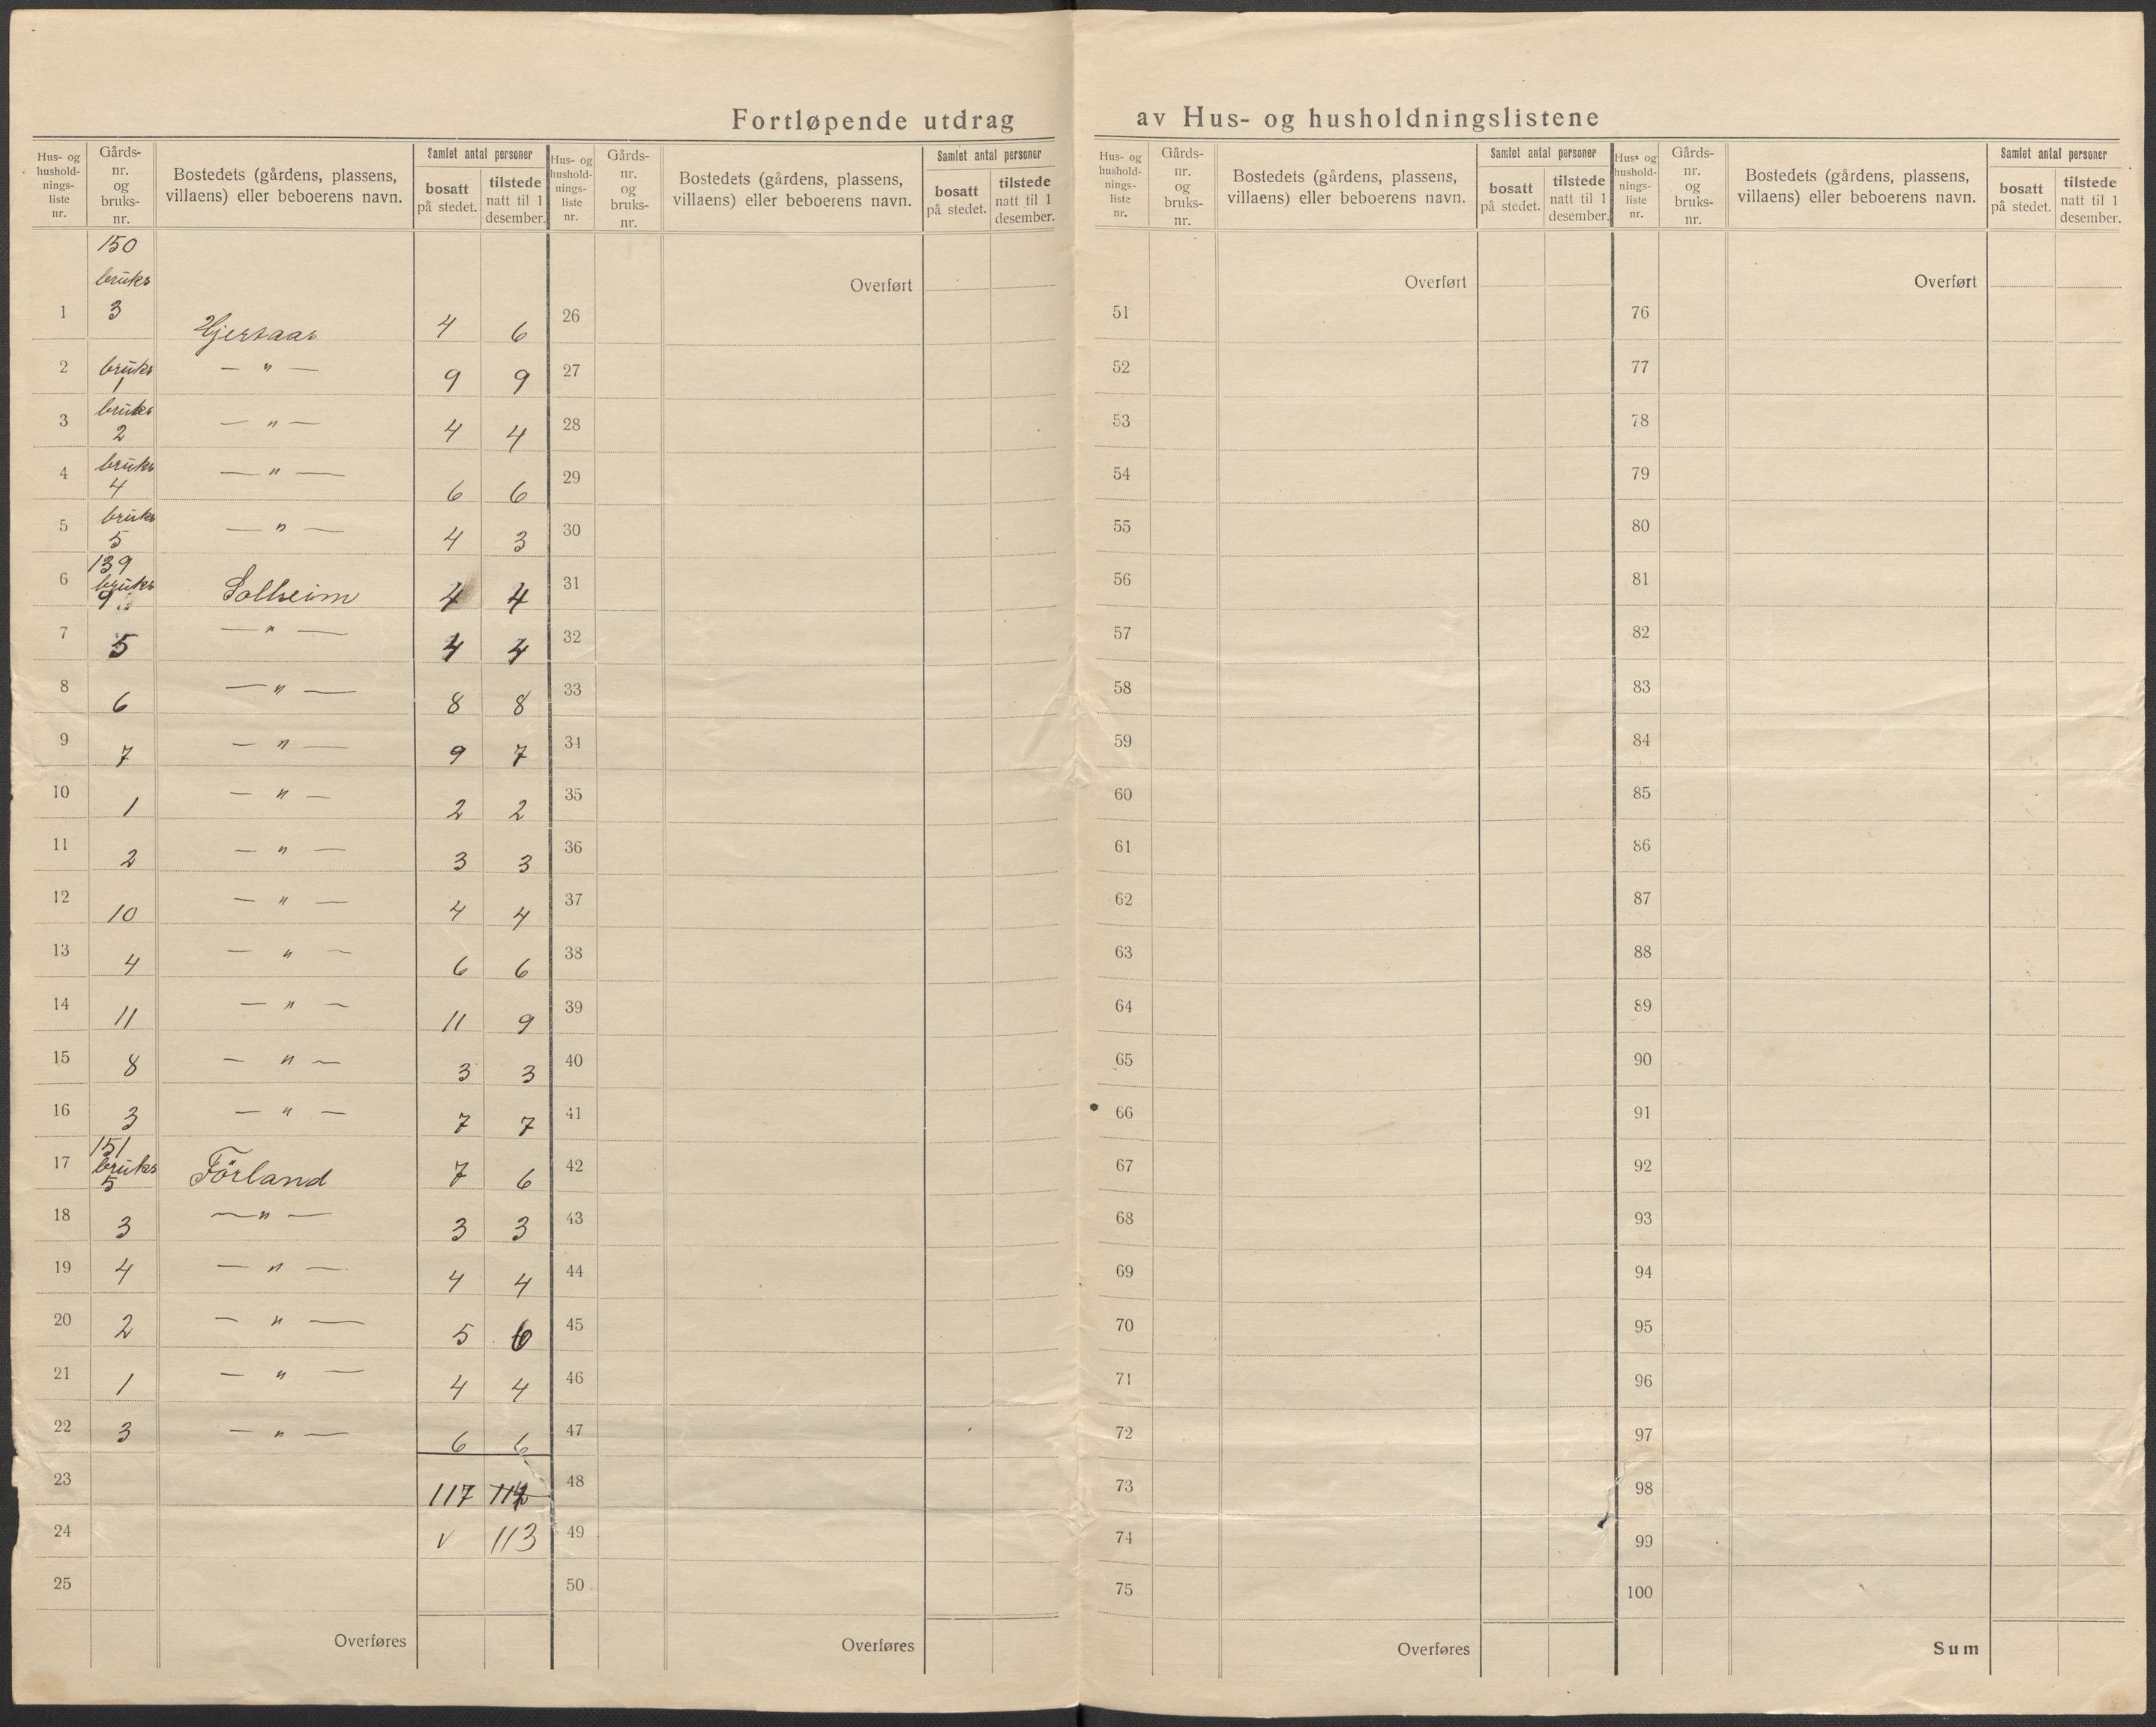 Fortløpende utdrag av Hus- og husholdningslistene
Hus- og hushold- nings- liste nr. | Gårds- nr. og bruks- nr. | Bostedets (gårdens, plassens, villaens) eller beboerens navn. | Samlet antal personer | bosatt på stedet. | tilstede natt til 1 desember.
Hus- og hushold- nings- liste nr. | Gårds- nr. og bruks- nr. | Bostedets (gårdens, plassens, villaens) eller beboerens navn. | Samlet antal personer | bosatt på stedet. | tilstede natt til 1 desember.
Hus- og hushold- nings- liste nr. | Gårds- nr. og bruks- nr. | Bostedets (gårdens, plassens, villaens) eller beboerens navn. | Samlet antal personer | bosatt på stedet. | tilstede natt til 1 desember.
Hus- og hushold- nings- liste nr. | Gårds- nr. og bruks- nr. | Bostedets (gårdens, plassens, villaens) eller beboerens navn. | Samlet antal personer | bosatt på stedet. | tilstede natt til 1 desember.
150
bruks
1 3 4 6
2 bruks 1 — " — 9 9
3 bruks 2 — " — 4 4
4 bruks 4 — " — 6 6
5 bruks 5 — " — 4 3
139
6 bruks 9 Solheim 4 4
7 5 — " — 4 4
8 6 — " — 8 8
9 7 — " — 9 7
10 1 — " — 2 2
11 2 — " — 3 3
12 10 — " — 4 4
13 4 — " — 6 6
14 11 — " — 11 9
15 8 — " — 3 3
16 3 — " — 7 7
151
17 bruks 5 Förland 7 6
18 3 — " — 3 3
19 4 — " — 4 4
20 2 — " — 5 6
21 1 — " — 4 4
22 3 — " — 6 6
23 117
24 v 113
25
Overføres
Overført
26
27
28
29
30
31
32
33
34
35
36
37
38
39
40
41
42
43
44
45
46
47
48
49
50
Overføres
Overført
51
52
53
54
55
56
57
58
59
60
61
62
63
64
65
66
67
68
69
70
71
72
73
74
75
Overføres
Overført
76
77
78
79
80
81
82
83
84
85
86
87
88
89
90
91
92
93
94
95
96
97
98
99
100
Sum